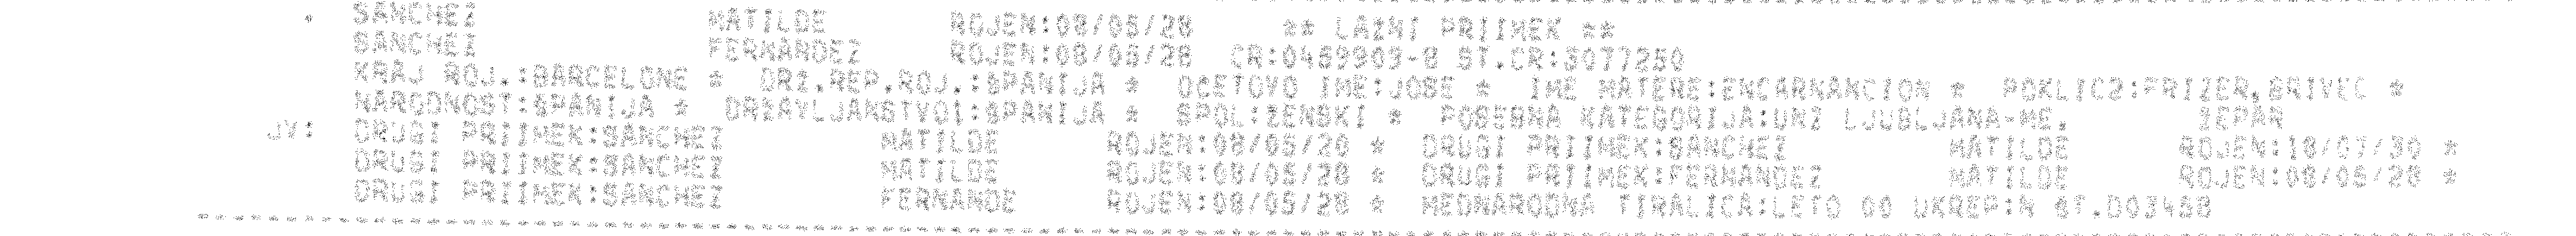 * SANCHEZ MATILDE ROJEN:08/05/28 ** LAZNI PRIIMEK **
SANCHEZ FERNANDEZ ROJEN:08/05/28 CR:0459903-8 ST.CR:3077250
KRAJ ROJ.:BARCELONE * DRZ.REP.ROJ.:SPANIJA * OCETOVO IME:JOSE * IME MATERE:ENCARNANCION * POKLIC2:FRIZER,BRIVEC *
NARODNOST:SPANIJA * DRZAVLJANSTVO1:SPANIJA * SPOL:ZENSKI * POSEBNA KATEGORIJA:UNZ LJUBLJANA-ME, ZEPAR
JV: DRUGI PRIIMEK:SANCHEZ MATILDE ROJEN:08/05/20 * DRUGI PRIIMEK:SANCHEZ MATILDE ROJEN:18/07/30 *
DRUGI PRIIMEK:SANCHEZ MATILDE ROJEN:08/05/28 * DRUGI PRIIMEK:FERNANDEZ MATILDE ROJEN:08/05/28 *
DRUGI PRIIMEK:SANCHEZ FERNANDE ROJEN:08/05/28 * MEDNARODNA TIRALICA:LETO 00 UKREP:N ST.D03468